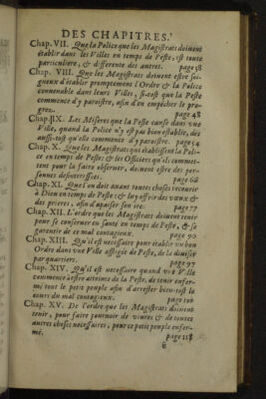 DES CHAPITRES.
Chap. VII. Que la Police que les Magistrats doiuent
établir dans les Villes en temps de Peste, est toute
particuliere, & differente des autres. page 38
Chap. VIII. Que les Magistrats doiuent estre soi-
gneux d'établir promptement l'Ordre & la Police
conuenable dans leurs Villes, si-tost que la Peste
commence d'y paroistre, afin d'en empécher le pro-
grez. page 48
Chap. IX. Les Miseres que la Peste cause dans vne
Ville, quand la Police n'y est pas bien establie, dés
aussi-tost qu'elle commence d'y paroistre. page
Chap. X. Que les Magistrats qui établissent la Poli-
ce en temps de Peste; & les Officiers qu'ils commet-
tent pour la faire obseruer, doiuent estre des per-
sonnes desinteressées. page 68
Chap. XI. Que l'on doit auant toutes choses recourir
à Dieu en temps de Peste & luy offrir des vœux &
des prieres, afin d'appaiser son ire. page 77
Chap. XII. L'ordre que les Magistrats doiuent tenir
pour se conseruer en santé en temps de Peste, & se
garantir de ce mal contagieux. page 90
Chap. XIII. Qu'il est necessaire pour établir vn bon
Ordre dans vne Ville affligée de Peste, de la diuiser
par quartiers. page 97
Chap. XIV. Qu'il est necessaire quand vne Ville
commence à estre atteinte de la Peste, de tenir enfer-
mé tout le petit peuple afin d'arrester bien-tost le
cours du mal contagieux. page 106
Chap. XV. De l'ordre que les Magistrats doiuent
tenir, pour faire fournir de viures & de toutes
autres choses necessaires, pour ce petit peuple enfer-
mé. page 118